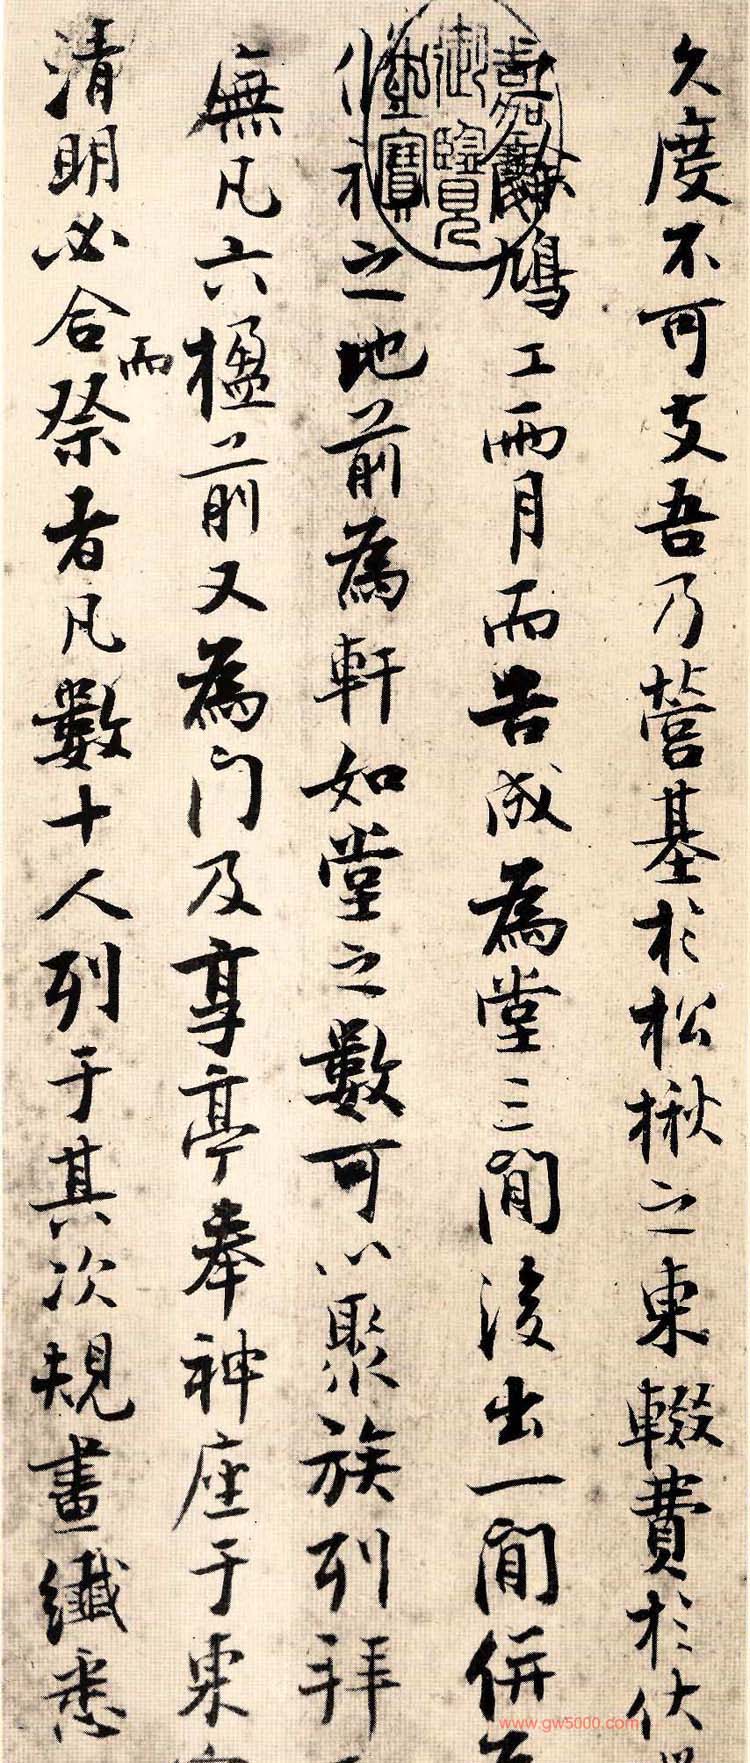 久度不可支吾乃營基於松楸之東輟費於伏
鳩工兩月而告成為堂三間後出一間併
祀之地前為軒如堂之數可以聚族列拜
廡凡六楹前又為門及享亭奉神座于東
清明必合而祭者凡數十人列于其次規畫纖悉
嘉慶
御覽
之寶
www.gw5000.com